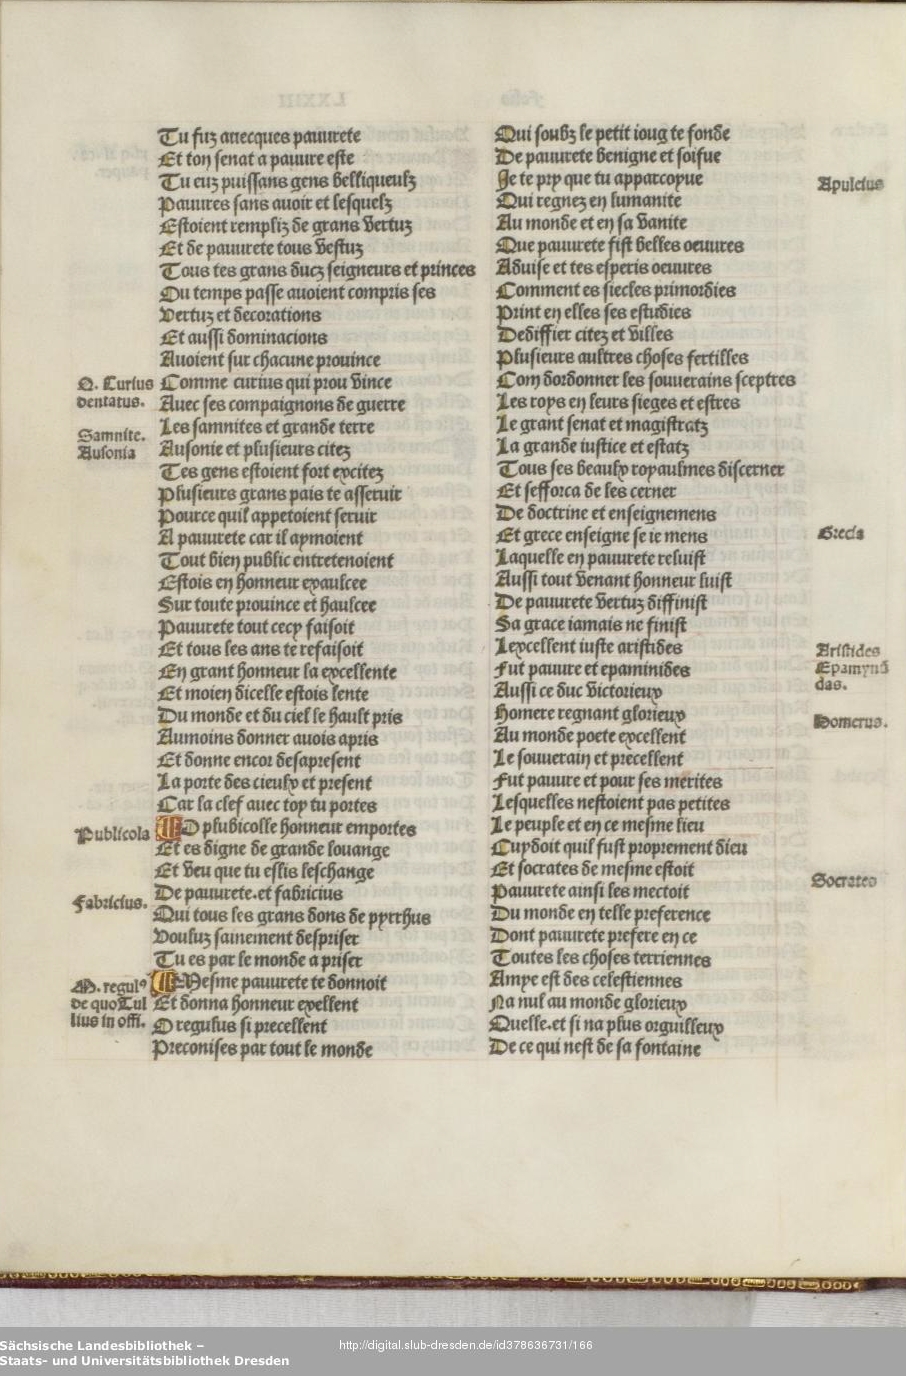 Tu fuz auecques pauurete
Et ton senat a pauure este
Tu euz puissans gens belliqueulz
Pauures sans auoir et lesquelz
Estoient rempliz de grans vertuz
Et de pauurete tous vestuz
Tous tes grans ducz seigneurs et princes
Ou temps passe auoient compris ses
Vertuz et decorations
Et aussi dominacions
Auoient sur chacune prouince
Q. Curius
dentatus.
Comme curius qui prou vince
Auec ses compaignons de guerre
Samnite.
Ausonia
Les samnites et grande terre
Ausonie et plusieurs citez
Tes gens estoient fort excitez
Plusieurs grans pais te asseruir
Pource quil appetoient seruir
A pauurete car il aymoient
Tout bien public entretenoient
Estois en honneur exaulcee
Sur toute prouince et haulcee
Pauurete tout cecy faisoit
Et tous les ans te refaisoit
En grant honneur la excellente
Et moien dicelle estois lente
Du monde et du ciel le hault pris
Aumoins donner auois apris
Et donne encor desapresent
La porte des cieulx et present
Car la clef auec toy tu portes
Publicola
O plubicolle honneur emportes
Et es digne de grande louange
Et veu que tu eslis leschange
De pauurete.et fabricius
Fabricius.
Qui tous les grans dons de pyrrhus
Vouluz sainement despriser
Tu es par le monde a priser
M. regulꝰ
de quo Tul
lius in offi.
Mesme pauurete te donnoit
Et donna honneur exellent
O regulus si precellent
Preconises par tout le monde
Qui soubz le petit ioug te fonde
De pauurete benigne et soifue
Apuleius
Je te pry que tu apparcoyue
Qui regnez en lumanite
Au monde et en sa vanite
Que pauurete fist belles oeuures
Aduise et tes esperis oeuures
Comment es siecles primordies
Print en elles ses estudies
Dediffier citez et villes
Plusieurs aultres choses fertilles
Com dordonner les souuerains sceptres
Les roys en leurs sieges et estres
Le grant senat et magistratz
La grande iustice et estatz
Tous ses beaulx royaulmes discerner
Et sefforca de les cerner
De doctrine et enseignemens
Grecia
Et grece enseigne se ie mens
Laquelle en pauurete reluist
Aussi tout venant honneur luist
De pauurete vertuz diffinist
Sa grace iamais ne finist
Aristides
Epamynō
das.
Lexcellent iuste aristides
Fut pauure et epaminides
Aussi ce duc victorieux
Homerus.
Homere regnant glorieux
Au monde poete excellent
Le souuerain et precellent
Fut pauure et pour ses merites
Lesquelles nestoient pas petites
Le peuple et en ce mesme lieu
Cuydoit quil fust proprement dieu
Socrates
Et socrates de mesme estoit
Pauurete ainsi les mectoit
Du monde en telle preference
Dont pauurete prefere en ce
Toutes les choses terriennes
Amye est des celestiennes
Na nul au monde glorieux
Quelle.et si na plus orguilleux
De ce qui nest de sa fontaine
Sächsische Landesbibliothek –
Staats- und Universitätsbibliothek Dresden
http://digital.slub-dresden.de/id378636731/166